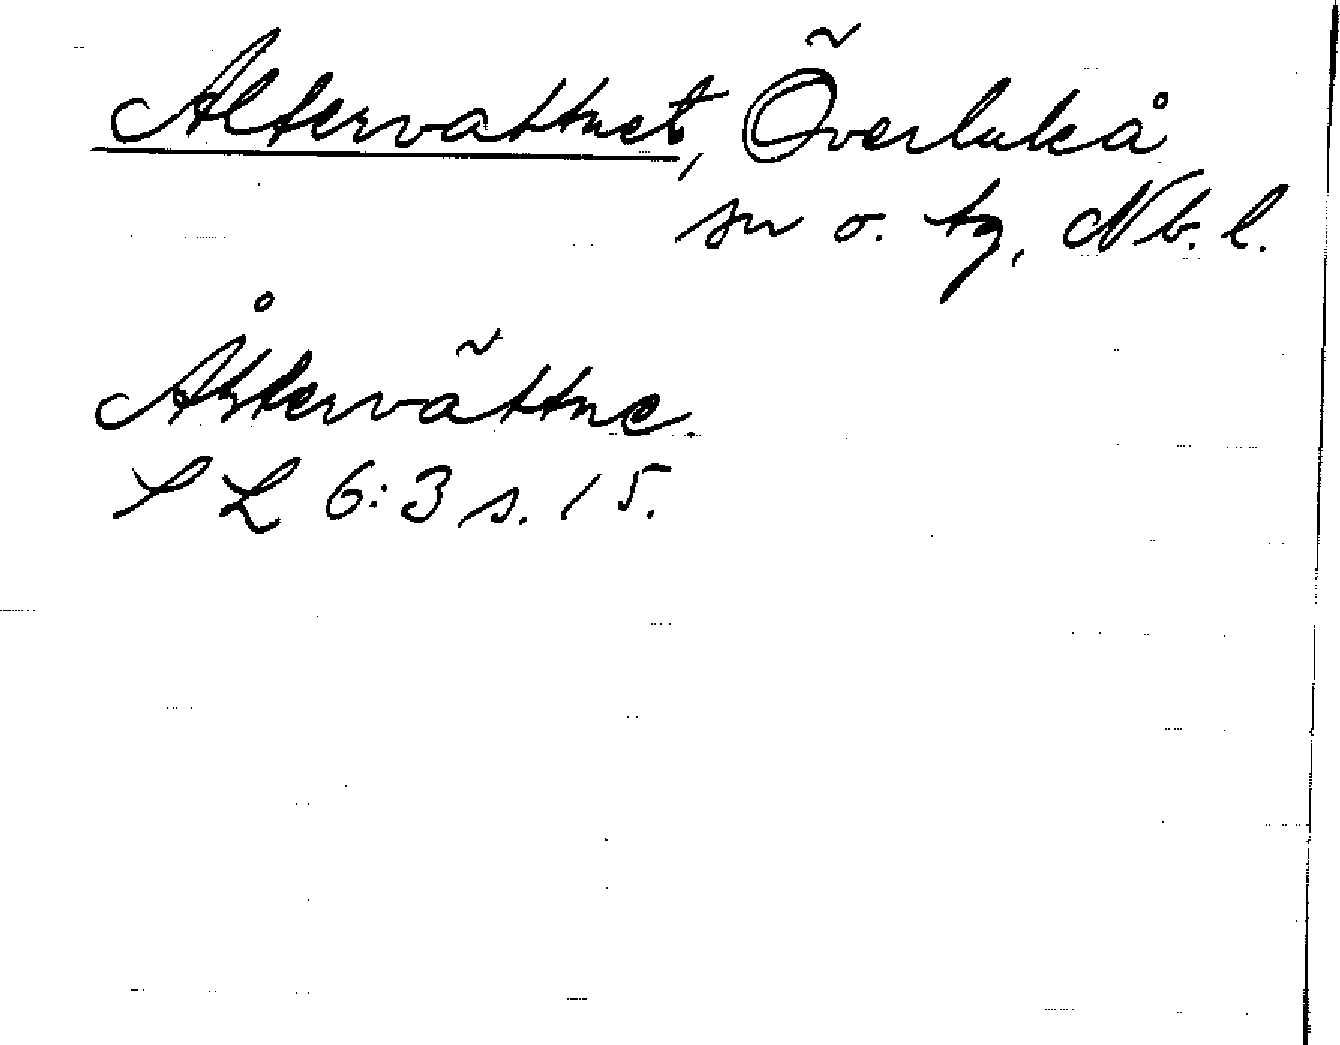 Altervattnet, Överluleå
sn o. tg, Nb. l.
Åltervättne.
SL 6:3 s. 15.